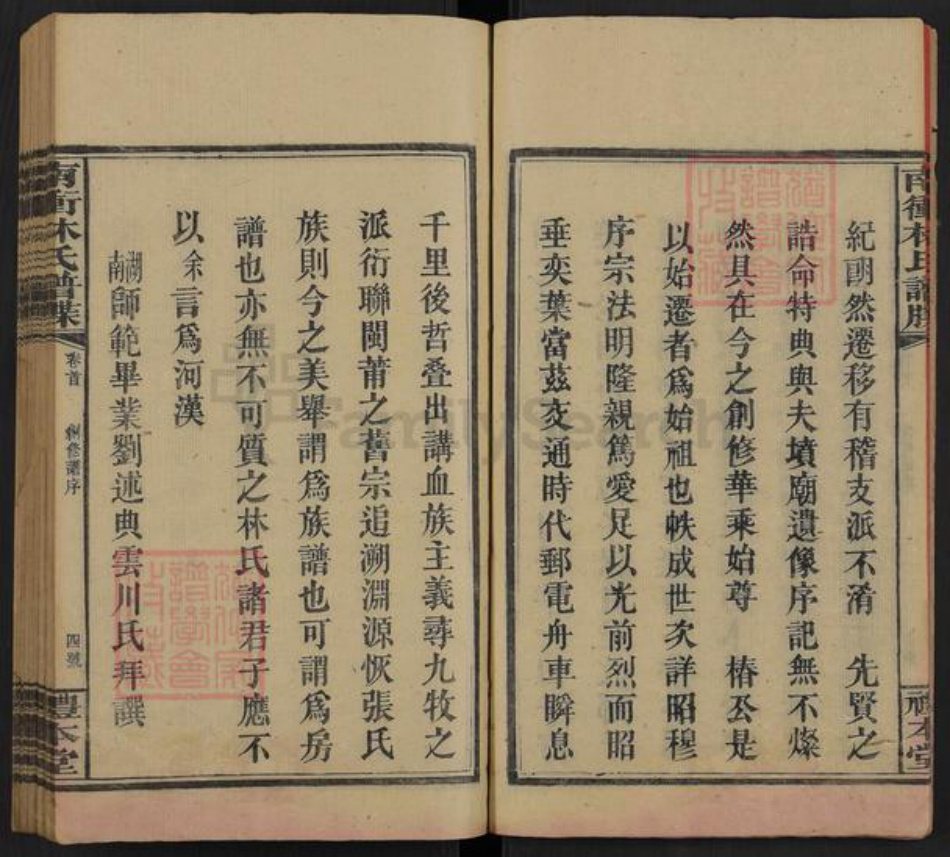 紀朙然遷移有稽支派不淆　先賢之
誥命特典與夫墳廟遺像序記無不燦
然具在今之創修華乘始尊　椿公是
以始遷者爲始祖也帙成世次詳昭穆
序宗法明隆親篤愛足以光前烈而昭
垂奕葉當茲交通時代郵電舟車瞬息
千里後哲叠出講血族主義尋九牧之
派衍聯閩莆之舊宗追溯淵源恢張氏
族則今之美舉謂爲族譜也可謂爲房
譜也亦無不可質之林氏諸君子應不
以余言爲河漢
湖南師範畢業劉述典雲川氏拜譔
南衝林氏譜牒
卷首
創修譜序
四號
禮本堂
FamilySearch